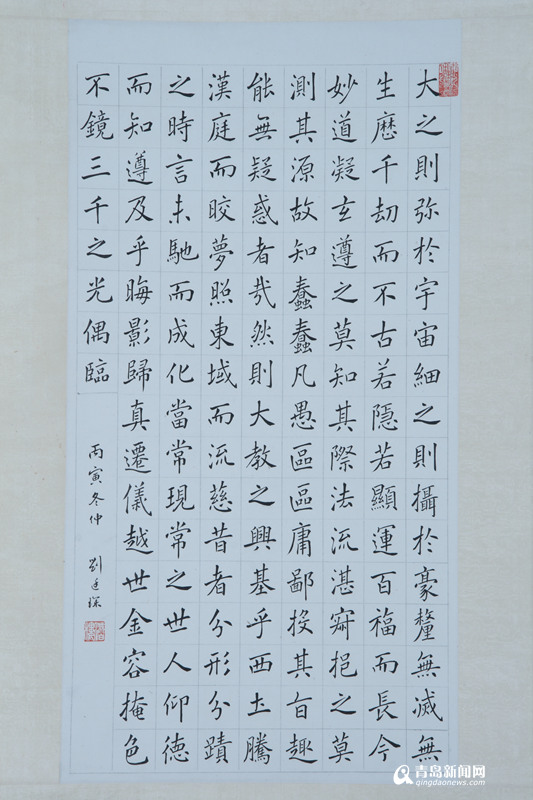 大之則弥於宇宙細之則攝於豪釐無滅無
生歷千劫而不古若隱若顯運百福而長今
妙道凝玄遵之莫知其際法流湛寂挹之莫
測其源故知蠢蠢凡愚區區庸鄙投其旨趣
能無疑惑者哉然則大教之興基乎西土騰
漢庭而皎夢照東域而流慈昔者分形分蹟
之時言未馳而成化當常現常之世人仰德
而知遵及乎晦影歸真遷儀越世金容掩色
不鏡三千之光偶臨
丙寅冬仲
劉廷琛
青岛新闻网
qingdaonews.com